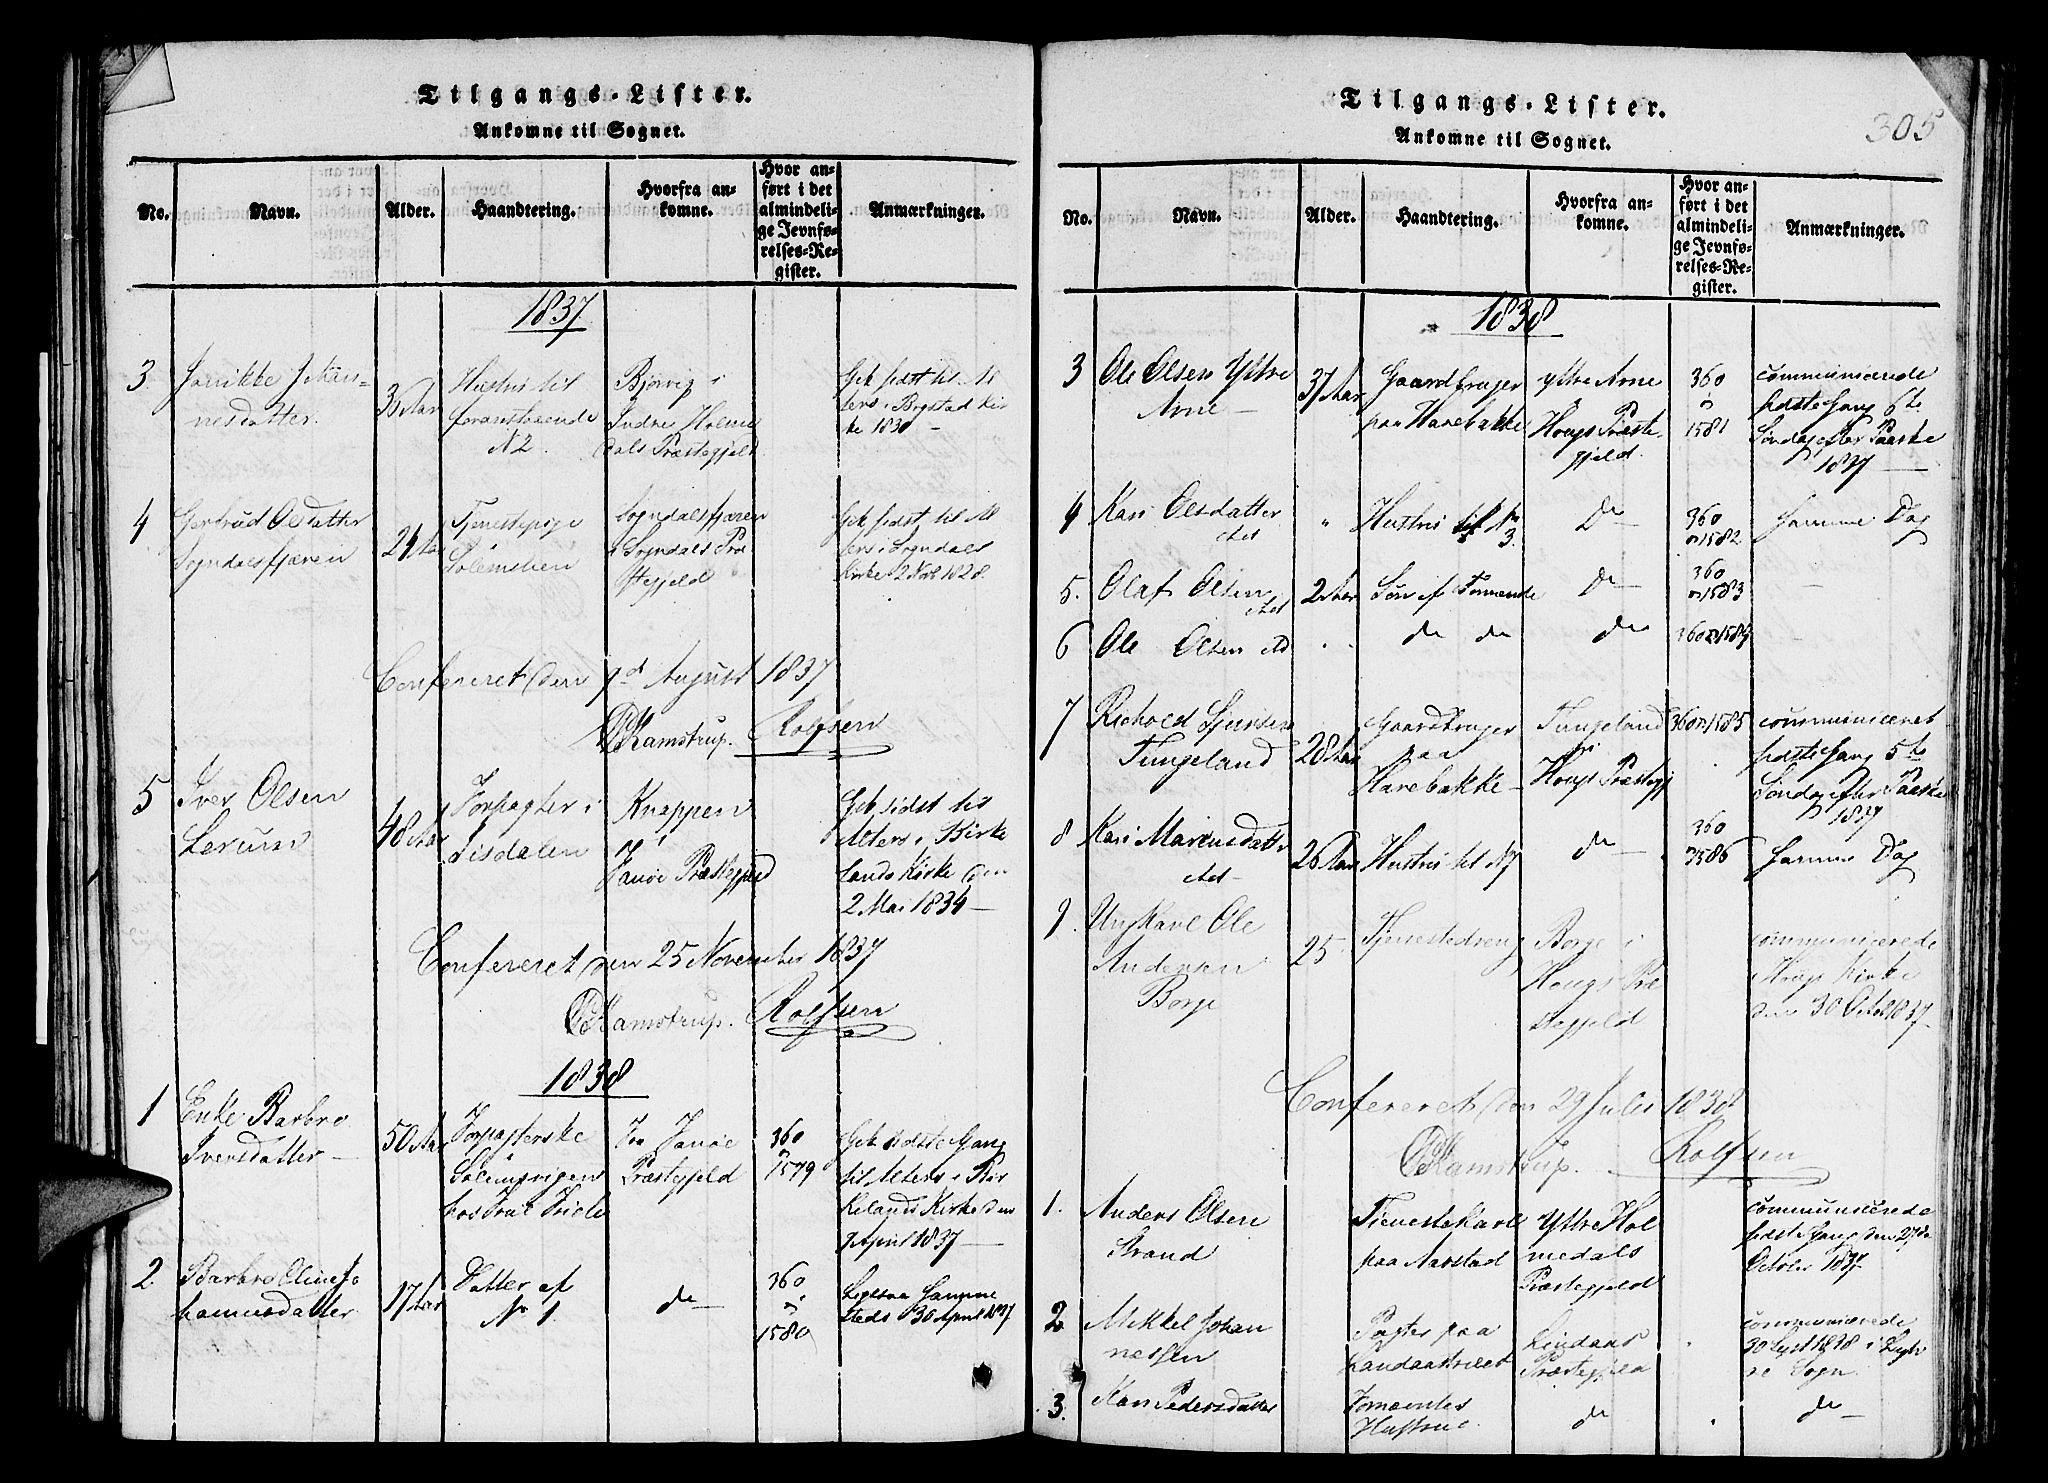 Tilgangs-Lister.
Ankomne til Sognet.
No.
Navn.
Alder.
Haandtering.
Hvorfra an-
komne.
Hvor an-
ført i det
almindeli-
ge Jevnfø-
relses-Re-
gister.
Anmærkninger.
1837
3.
Janikke Johan-
nesdatter.
Aar
Hustru til
foranstaaende
N 2.
Bjørvig i
Indre Holme
dals Præstegjeld
Gik sidst til Al
ters i Bygstad Kir
ke 1830 -
4
Gertrud Olsdatter
Sogndalsfjæren
24 Aar
Tjenestepige
Solemslien
Sogndalsfjæren
i Sogndals Præ
stegjeld
Gik sidst til Al
ters i Sogndals
Kirke 2 Nov 1828.
Confereret den August 1837
Ramstrup. Rolfsen
5
Iver Olsen
Lerum
48 Aar
Forpagter i
Isdalen
Knappen
i
Fanøe Præstegjeld
Gik sidst til
Alters i Birke
lands Kirke den
2 Mai 1834 -
Confereret den 25 November 1837
Ramstrup. Rolfsen
1838
1
Enke Barbro
Iversdatter -
50 Aar
Forpagterske
hos
Fra Fanøe
Præstegjeld
360
n
1579
Gik sidste Gang
til Alters i Bir
kelands Kirke den
April 1837 -
2
Barbro Oline Jo
hannesdatter
17 Aar
Datter af
No 1.
do -
360
n
1580
Ligesaa Samme
steds 30 April 1837
Tilgangs-Lister.
Ankomne til Sognet.
305
No.
Navn.
Alder.
Haandtering.
Hvorfra an-
komne.
Hvor an-
ført i det
almindeli-
ge Jevnfø-
relses-Re-
gister.
Anmærkninger.
1838
3
Ole Olsen Ystre
Arne -
37 Aar
Gaardbruger
paa Harebakke
Ystre Arne
Hougs Præste-
gjeld.
360
n
1581
communicerede
sidste Gang 6te
Søndag efter Paaske
1837 -
4
Kari Olsdatter
ibd
"
Hustru til No
3.
Do -
360
n 1582.
Samme Dag
5.
Olaf Olsen
ibd
2 Aar
Søn af Formænde
Do -
360
n 1583
-
6
Ole Olsen ibd
do do
do
360 n 1584
-
7
Richold Sjursen
Tungeland
28 Aar
Gaardbruger
paa
Harebakke -
Tungeland
i
Hougs Præstegj
360 n 1585
communiceret
sidste Gang 5te
Søndag efter Paaske
1837
8
Kari Marcusdatter
ibd -
26 Aar
Hustru til N 7
do -
360
n 1586
Samme Dag
9.
Ungkarl Ole
Andersen
Borge
25
Tjenestedreng
Borge i
Hougs Præ
stegjeld
communicerede
Hougs Kirke
den 30 Octob 1837 -
Confereret den 29 Juli 1838
Ramstrup. Rolfsen
1.
Anders Olsen
Strand
Tienestekarl
paa Aarstad
Ystre Hol
medals
Præstegjeld
communicerede
sidste Gang den 27de
October 1837.
2
Mikkel Johan
nessen
Pagter paa
Lindaas
Præstegjeld
communicerede
1838 i
re Sogn.
3.
Kari Pedersdatter
Formentes
Hustrue
do
do -